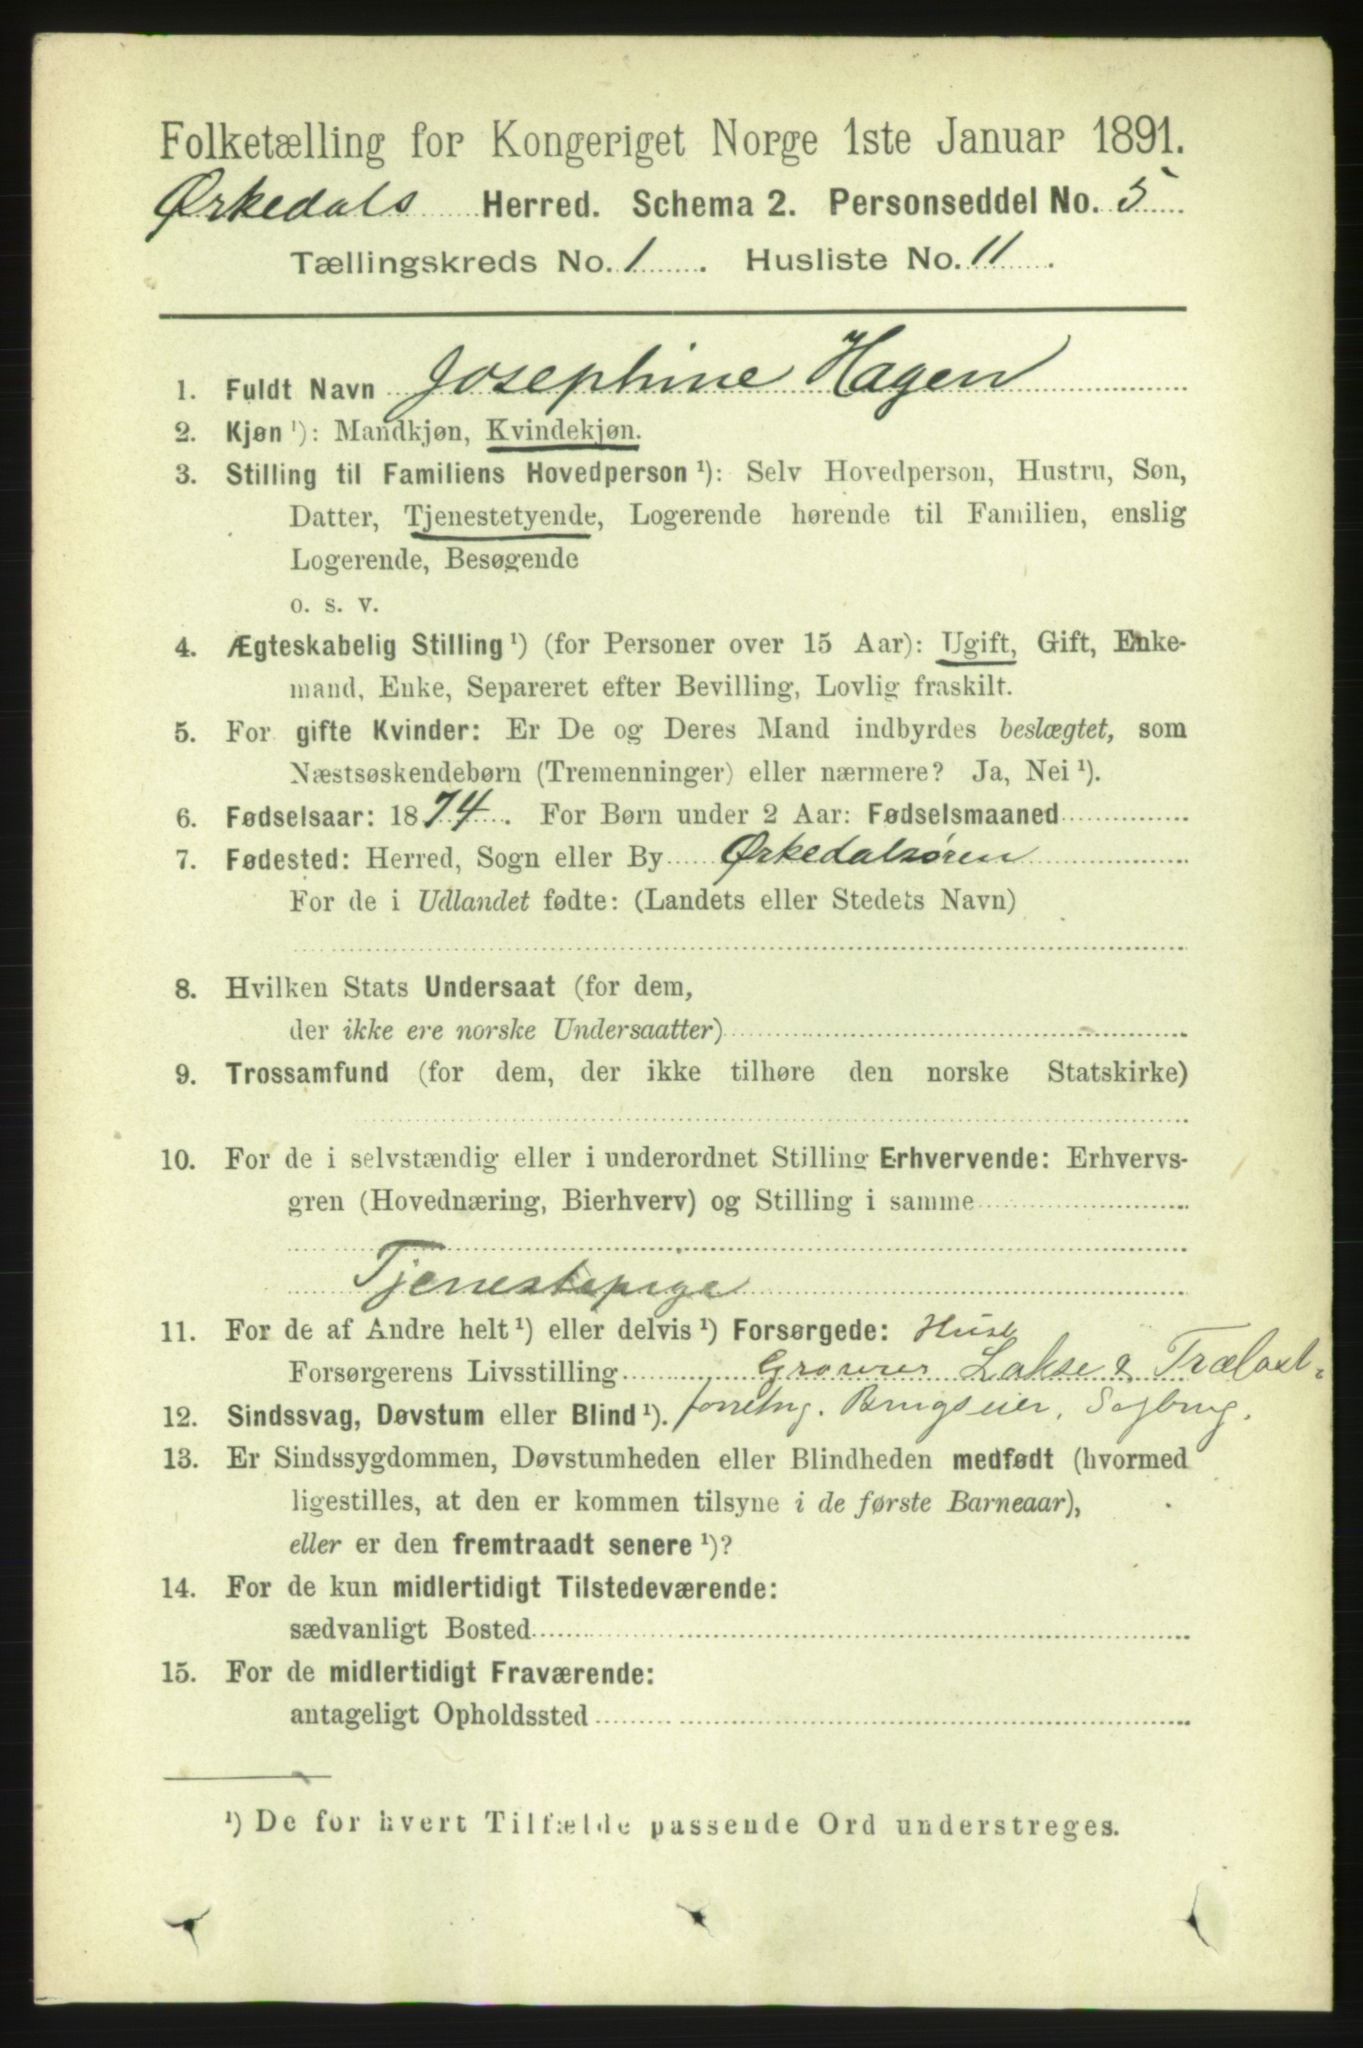 Folketælling for Kongeriget Norge 1ste Januar 1891.
Ørkedals Herred. Schema 2. Personseddel No. 5
Tællingskreds No. 1. Husliste No. 11.
1. Fuldt Navn Josephine Hagen
2. Kjøn ¹): Mandkjøn, Kvindekjøn.
3. Stilling til Familiens Hovedperson ¹): Selv Hovedperson, Hustru, Søn,
Datter, Tjenestetyende, Logerende hørende til Familien, enslig
Logerende, Besøgende
o. s. v.
4. Ægteskabelig Stilling ¹) (for Personer over 15 Aar): Ugift, Gift, Enke-
mand, Enke, Separeret efter Bevilling, Lovlig fraskilt.
5. For gifte Kvinder: Er De og Deres Mand indbyrdes beslægtet, som
Næstsøskendebørn (Tremenninger) eller nærmere? Ja, Nei ¹).
6. Fødselsaar: 1874. For Børn under 2 Aar: Fødselsmaaned
7. Fødested: Herred, Sogn eller By Ørkedalsøren
For de i Udlandet fødte: (Landets eller Stedets Navn)
8. Hvilken Stats Undersaat (for dem,
der ikke ere norske Undersaatter)
9. Trossamfund (for dem, der ikke tilhøre den norske Statskirke)
10. For de i selvstændig eller i underordnet Stilling Erhvervende: Erhvervs-
gren (Hovednæring, Bierhverv) og Stilling i samme
Tjenestepige
11. For de af Andre helt ¹) eller delvis ¹) Forsørgede: Husb
Forsørgerens Livsstilling Lakse & Trælast-
12. Sindssvag, Døvstum eller Blind ¹). forretng. Brugseier, Sagbrug.
13. Er Sindssygdommen, Døvstumheden eller Blindheden medfødt (hvormed
ligestilles, at den er kommen tilsyne i de første Barneaar),
eller er den fremtraadt senere ¹)?
14. For de kun midlertidigt Tilstedeværende:
sædvanligt Bosted
15. For de midlertidigt Fraværende:
antageligt Opholdssted
¹) De for hvert Tilfælde passende Ord understreges.